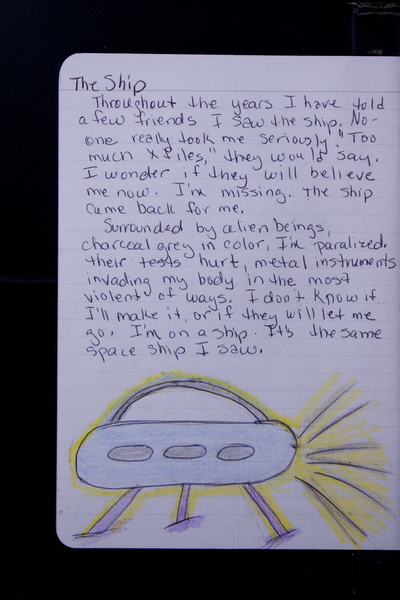 The Ship
Throughout the years I have told
a few friends I saw the ship. No-
one really took me seriously. "Too
much X files," they would say.
I wonder if they will believe
me now. I'm missing. The ship
came back for me.
Surrounded by alien beings,
charcoal grey in color, I'm paralized.
their tests hurt, metal instruments
invading my body in the most
violent of ways. I don't know if
I'll make it, or if they will let me
go. I'm on a ship. It's the same
space ship I saw.